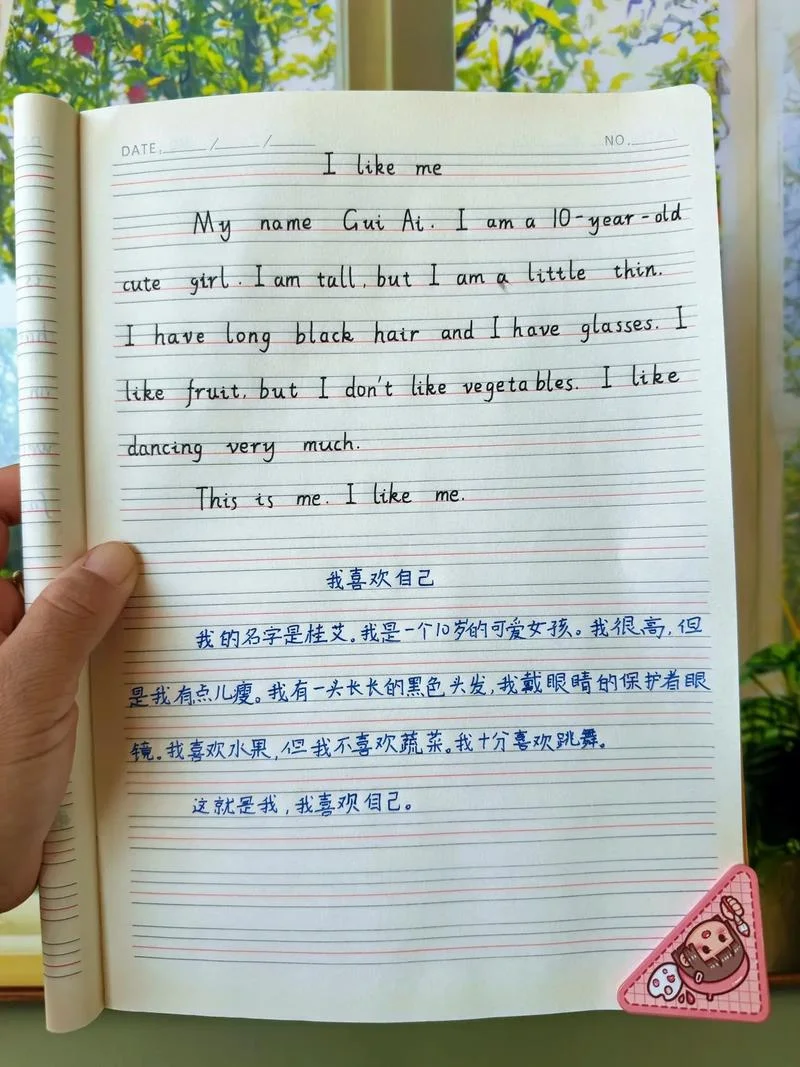 DATE, / /
NO.
I like me
My name Gui Ai. I am a 10-year-old
cute girl. I am tall, but I am a little thin.
I have long black hair and I have glasses. I
like fruit, but I don't like vegetables. I like
dancing very much.
This is me. I like me.
我喜欢自己
我的名字是桂艾。我是一个10岁的可爱女孩。我很高,但
是我有点儿瘦。我有一头长长的黑色头发,我戴眼睛的保护者眼
镜。我喜欢水果,但我不喜欢蔬菜。我十分喜欢跳舞。
这就是我,我喜欢自己。